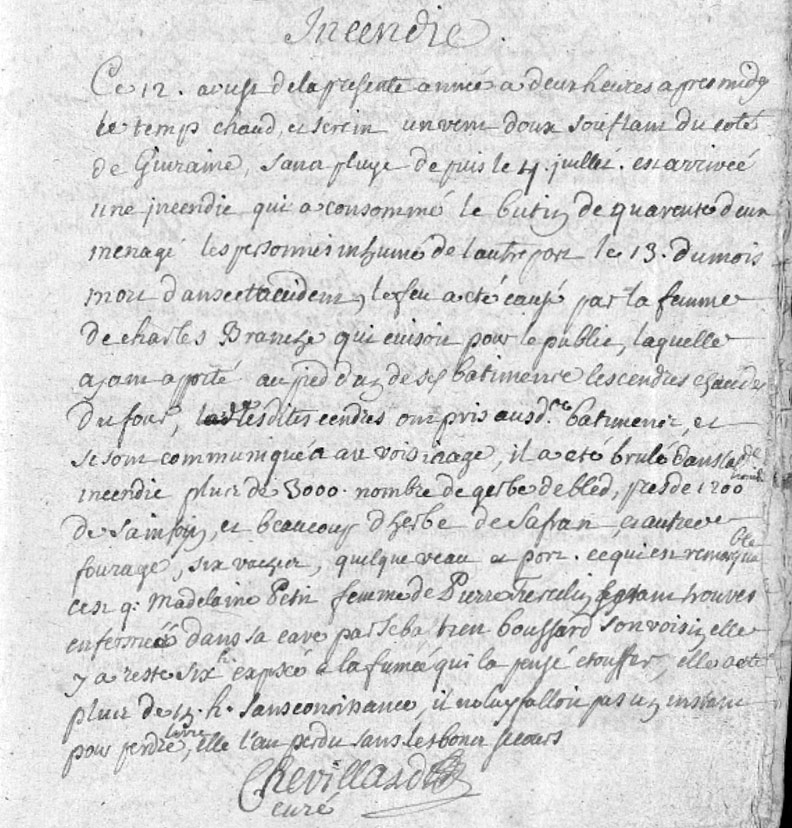 Incendie.
Ce 12. aoust de la presente année a deux heures apres midy
le temp chaud, et serein un vent doux souflant du coté
de Giuraine, sans pluye depuis le 4 juillet. est arrivée
une jncendie qui a consommé le butin de quarente deux
menage les personnes inhumé de l'autre part le 13. du mois
mort dans cet accident, le feu a eté causé par la femme
de charles Branche qui cuisoit pour le public, laquelle
ayant apporté au pied d'un de ses batiments les cendres chaudes
du four, lesdites cendres ont pris ausd. batiments, et
se sont communiqué au voisinage, il a eté brulé dans
incendie plus de 3000. nombre de gerbe de bled, pres de 1200
de sainfoin, et beaucoup d'herbe de safran, et autre
fourage, six vaches, quelque veau et porc. ce qui est remarquable
c'est q. Madelaine Petit femme de Pierre estant trouvés
enfermée dans sa cave par Sebastien boussard son voisin elle
y a resté six h exposé a la fumée qui la pensé etouffer, elle a eté
plus de h. sans connoissance, il ne luy falloit pas un instant
pour perdre la vie, elle l'aut perdu sans les bons secours
Chevillard
curé